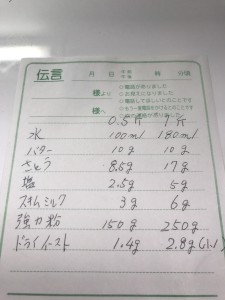 伝言 月 日 午前 午後 時 分頃
様より ○電話が有りました
○お見えになりました
○電話してほしいとのことです
様へ
0.5斤 1斤
水 100ml 180ml
バター 10g 10g
さとう 8.5g 17g
塩 2.5g 5g
スキムミルク 3g 6g
強力粉 150g 250g
ドライイースト 1.4g 2.8g